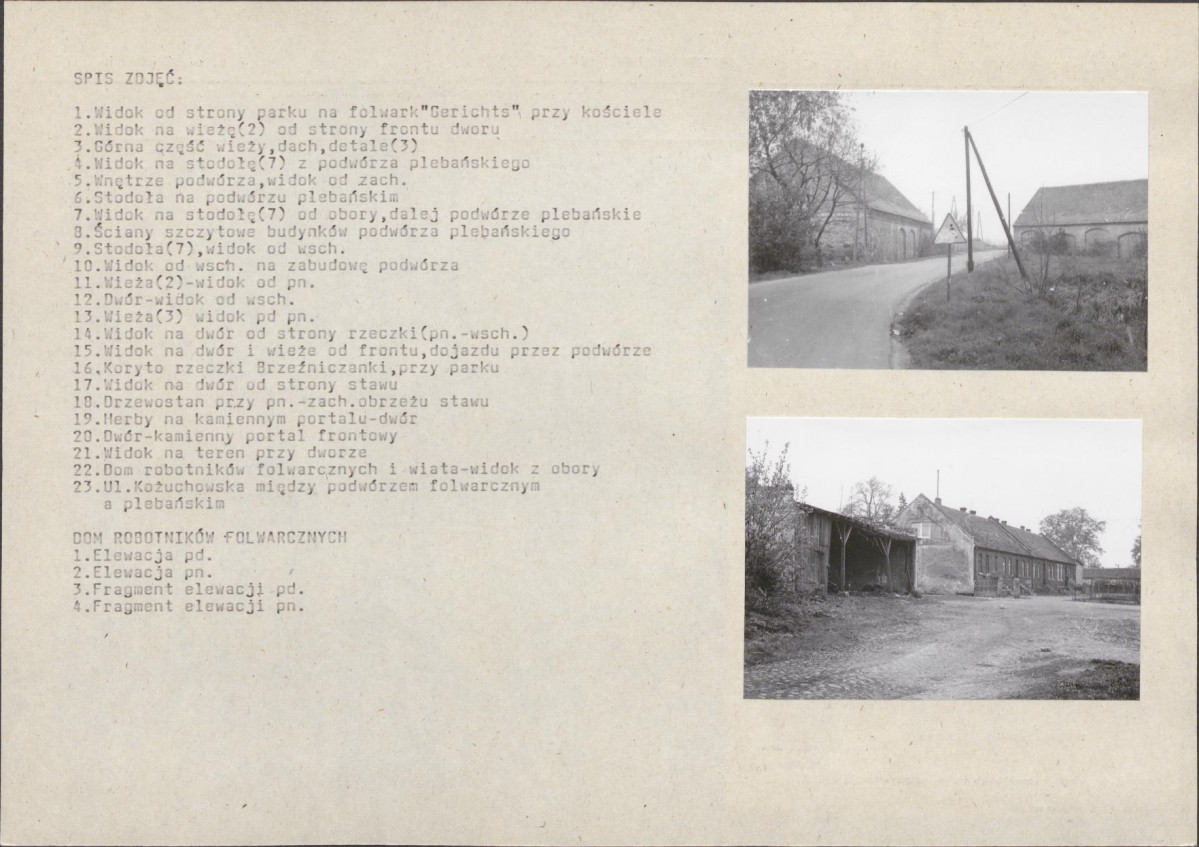 SPIS ZDJĘĆ:
1.Widok od strony parku na folwark"Gerichts" przy kościele
2.Widok na wieżę(2) od strony frontu dworu
3.Górna część wieży,dach,detale(3)
4.Widok na stodołę(7) z podwórza plebańskiego
5.Wnętrze podwórza,widok od zach.
6.Stodoła na podwórzu plebańskim
7.Widok na stodołę(7) od obory,dalej podwórze plebańskie
8.Ściany szczytowe budynków podwórza plebańskiego
9.Stodoła(7),widok od wsch.
10.Widok od wsch. na zabudowę podwórza
11.Wieża(2)-widok od pn.
12.Dwór-widok od wsch.
13.Wieża(3) widok pd pn.
14.Widok na dwór od strony rzeczki(pn.-wsch.)
15.Widok na dwór i wieże od frontu,dojazdu przez podwórze
16.Koryto rzeczki Brzeźniczanki,przy parku
17.Widok na dwór od strony stawu
18.Drzewostan przy pn.-zach.obrzeżu stawu
19.Herby na kamiennym portalu-dwór
20.Dwór-kamienny portal frontowy
21.Widok na teren przy dworze
22.Dom robotników folwarcznych i wiata-widok z obory
23.Ul.Kożuchowska między podwórzem folwarcznym
a plebańskim
DOM ROBOTNIKÓW FOLWARCZNYCH
1.Elewacja pd.
2.Elewacja pn.
3.Fragment elewacji pd.
4.Fragment elewacji pn.